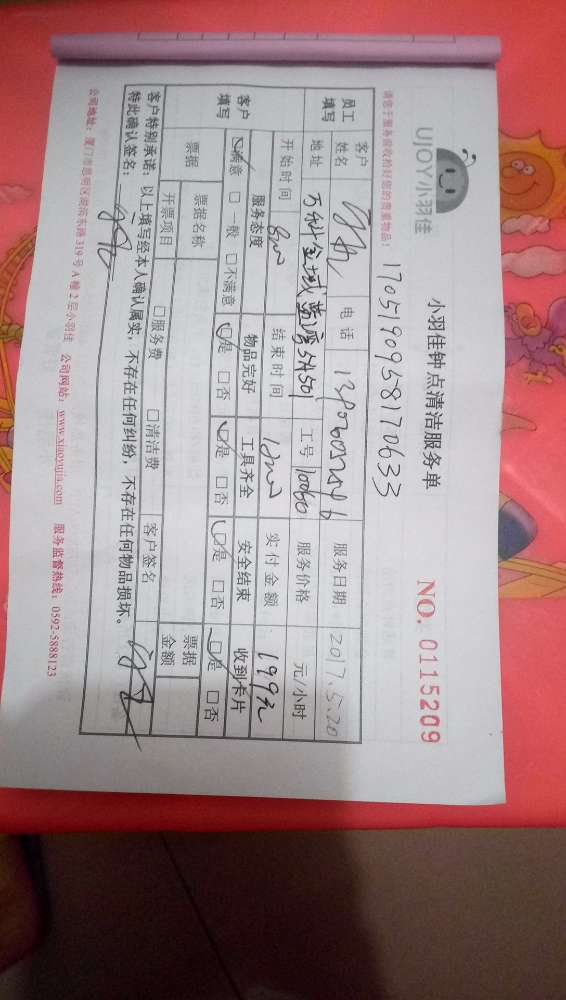 UJOY小羽佳
小羽佳钟点清洁服务单
NO. 0115209
请您于服务前收拾好您的贵重物品!
1705190958170633
员工填写
客户姓名
电话
服务日期 2017.5.20
地址 万科金域蓝湾5A501
工号 10060
服务价格 元/小时
开始时间 8:00
结束时间 12:00
实付金额 199元
客户填写
服务态度 物品完好 工具齐全 安全结束 收到卡片
☑满意 □一般 □不满意 ☑是 □否 ☑是 □否 ☑是 □否 ☑是 □否
票据
票据名称
票据金额
开票项目 □服务费 □清洁费 客户签名
客户特别承诺:以上填写经本人确认属实,不存在任何纠纷,不存在任何物品损坏。
特此确认签名:
公司地址:厦门市思明区湖滨东路319号A幢2层小羽佳 公司网站:www.xiaoyujia.com 服务监督热线:0592-5888123